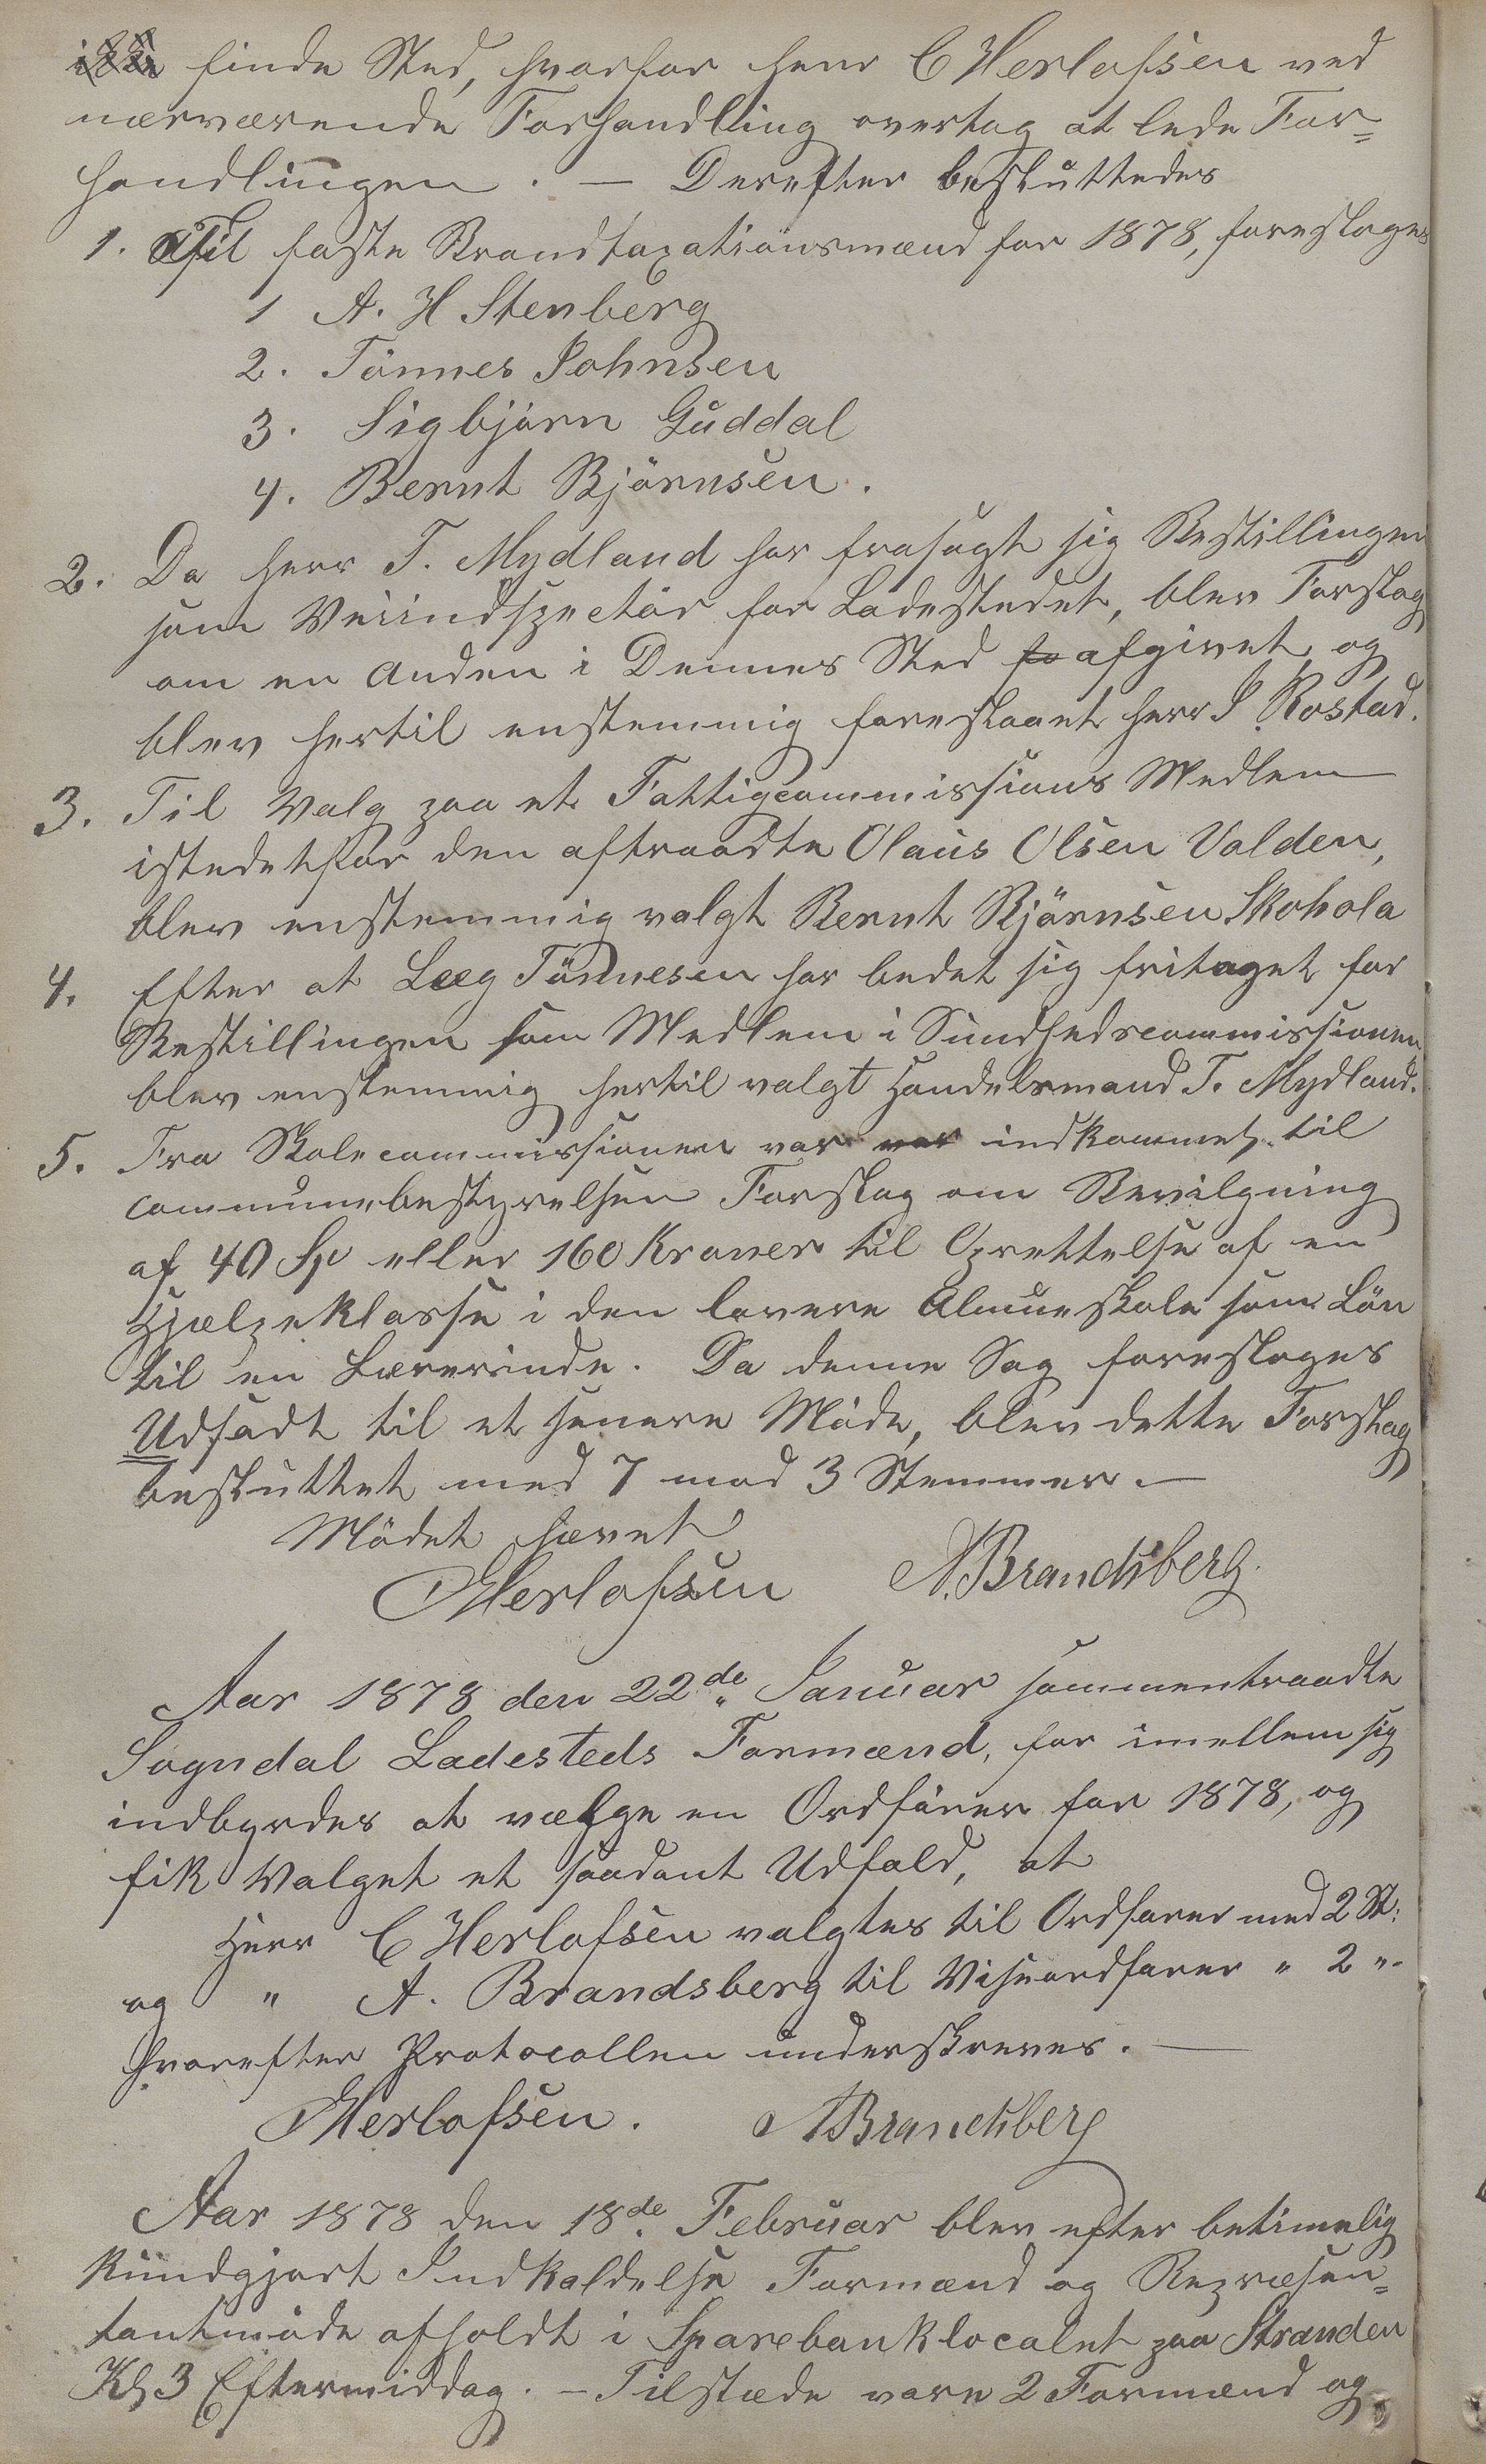 finde Sted, hvorfor herr C Herlofsen ved
nærværende Forhandling overtog at lede For=
handlingen. — Derefter besluttedes
1. Til faste Brandtaxationsmænd for 1878, foresloges
1 A. H Stenberg
2. Tönnes Johnsen
3. Sigbjörn Guddal
4. Bernt Björnsen.
2. Da herr T. Mydland har frasagt sig Bestillingen
som Veiindspectör for Ladestedet, blev Forslag
om en Anden i Dennes Sted afgivet, og
blev hertil enstemmig foreslaaet herr J. Rostad.
3. Til Valg paa et Fattigcommissions Medlem
istedetfor den aftraadte Olaus Olsen Valden,
blev enstemmig valgt Bernt Björnsen Skohola
4. Efter at Læg Tönnesen har bedet sig fritaget for
Bestillingen som Medlem i Sundhedscommissionen
blev enstemmig hertil valgt Handelsmand T. Mydland.
5. Fra Skolecommissionen var indkommet til
communebestyrelsen Forslag om Bevilgning
af 40 Sp eller 160 Kroner til Oprettelse af en
Hjælpeklasse i den lavere Almueskole som Lön
til en Lærerinde. Da denne Sag foresloges
Udsadt til et senere Möde, blev dette Forslag
besluttet med 7 mod 3 Stemmer. —
Mödet hævet
CHerlofsen A. Brandsberg.
Aar 1878 den 22de Januar sammentraadte
Sogndal Ladesteds Formænd, for imellem sig
indbyrdes at vælge en Ordförer for 1878, og
fik Valget et saadant Udfald, at
Herr C Herlofsen valgtes til Ordförer med 2 St:
og " A. Brandsberg til Viseordförer " 2 "
hvorefter Protocollen underskreves. —
CHerlofsen. ABrandsberg
Aar 1878 den 18de Februar blev efter betimelig
kundgjort Indkaldelse Formænd og Repræsen=
tantmöde afholdt i Sparebanklocalet paa Stranden
Kl 3 Eftermiddag. — Tilstæde vare 2 Formænd og